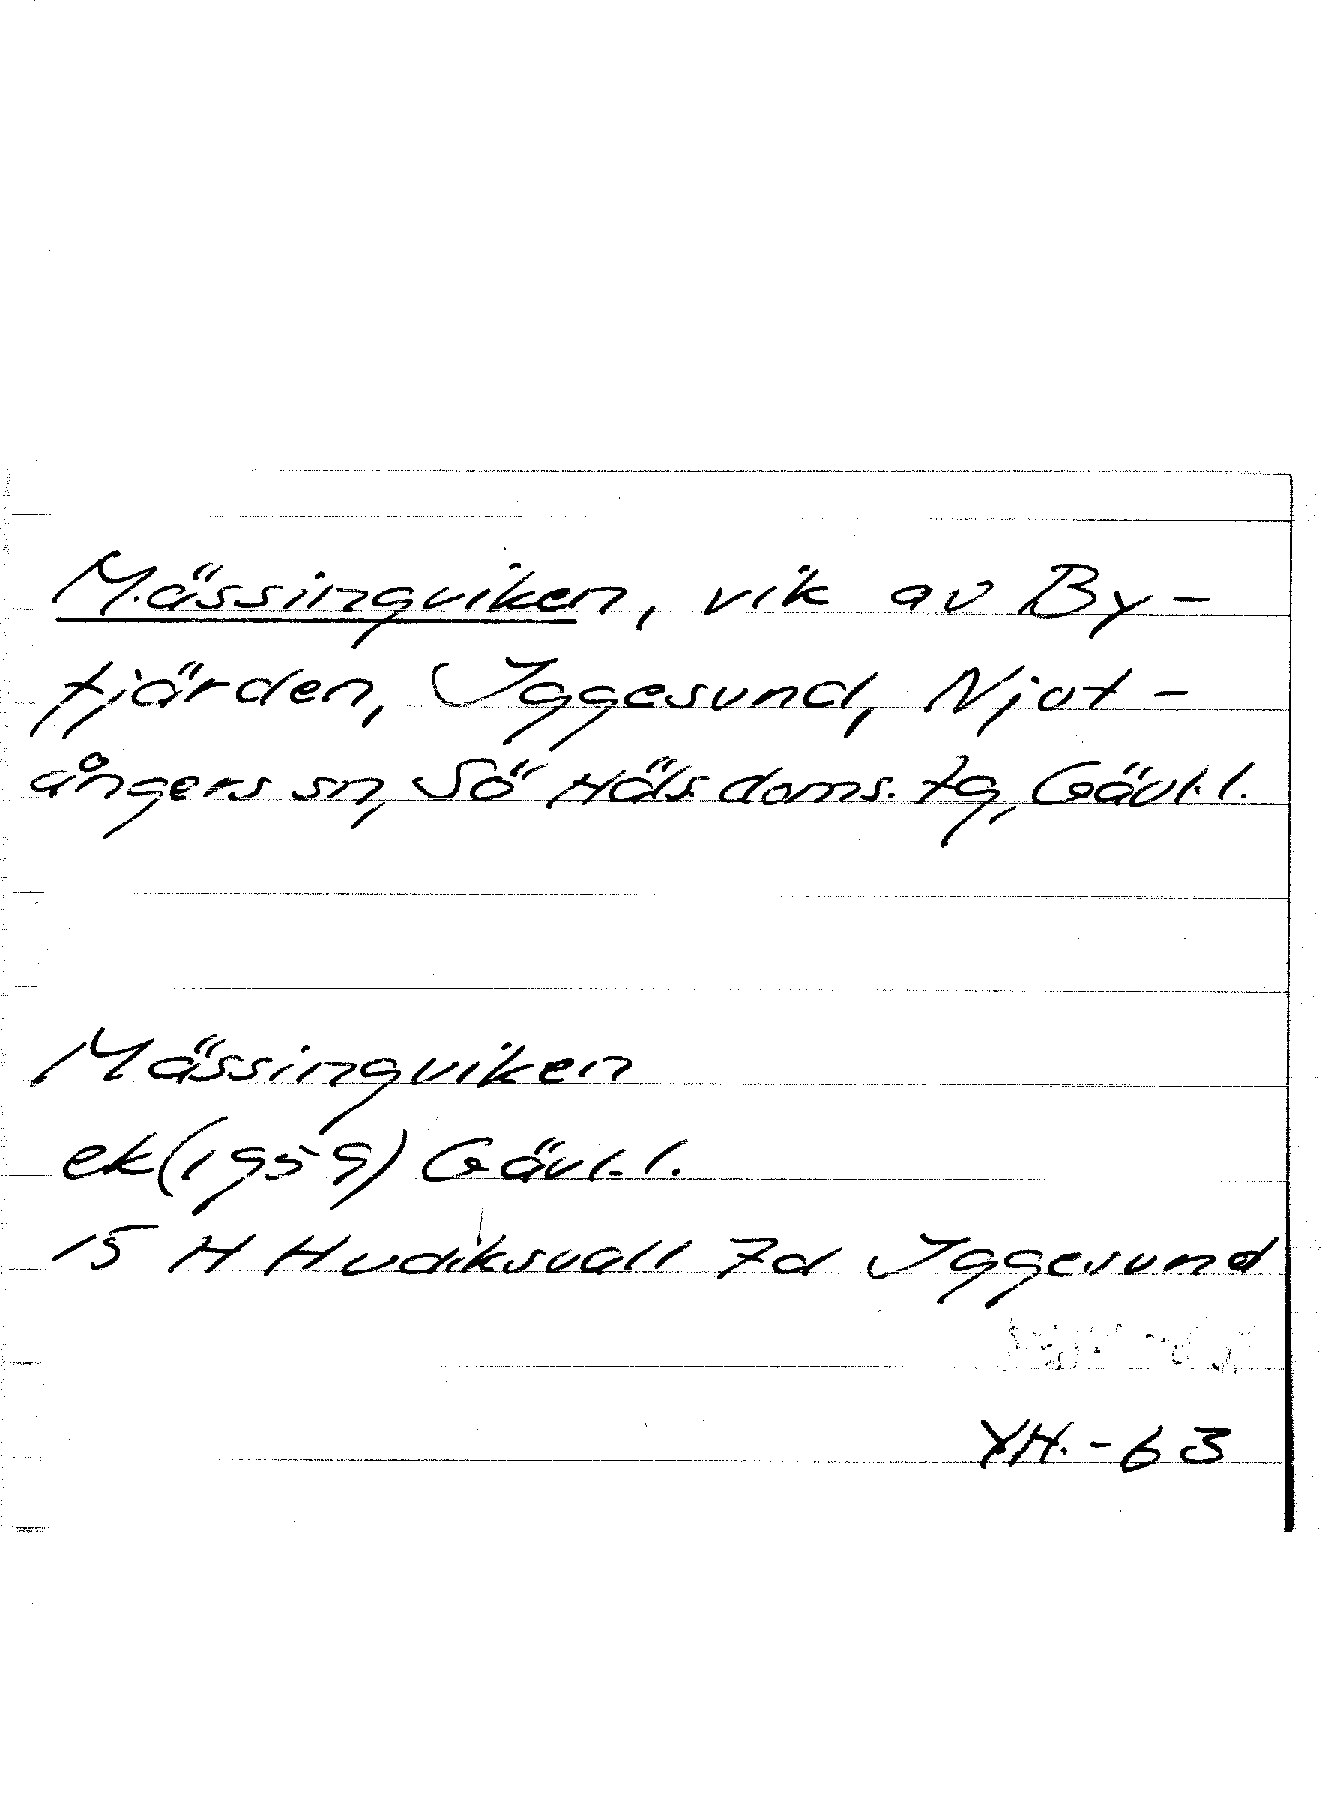 Mässingviken, vik av By-
fjärden, Iggesund, Njut-
ångers sn, Sö Häls. doms. tg, Gävl. l.
Mässingviken
ek (1959) Gävl. l.
15 H Hudiksvall 7d Iggesund
YH. -63